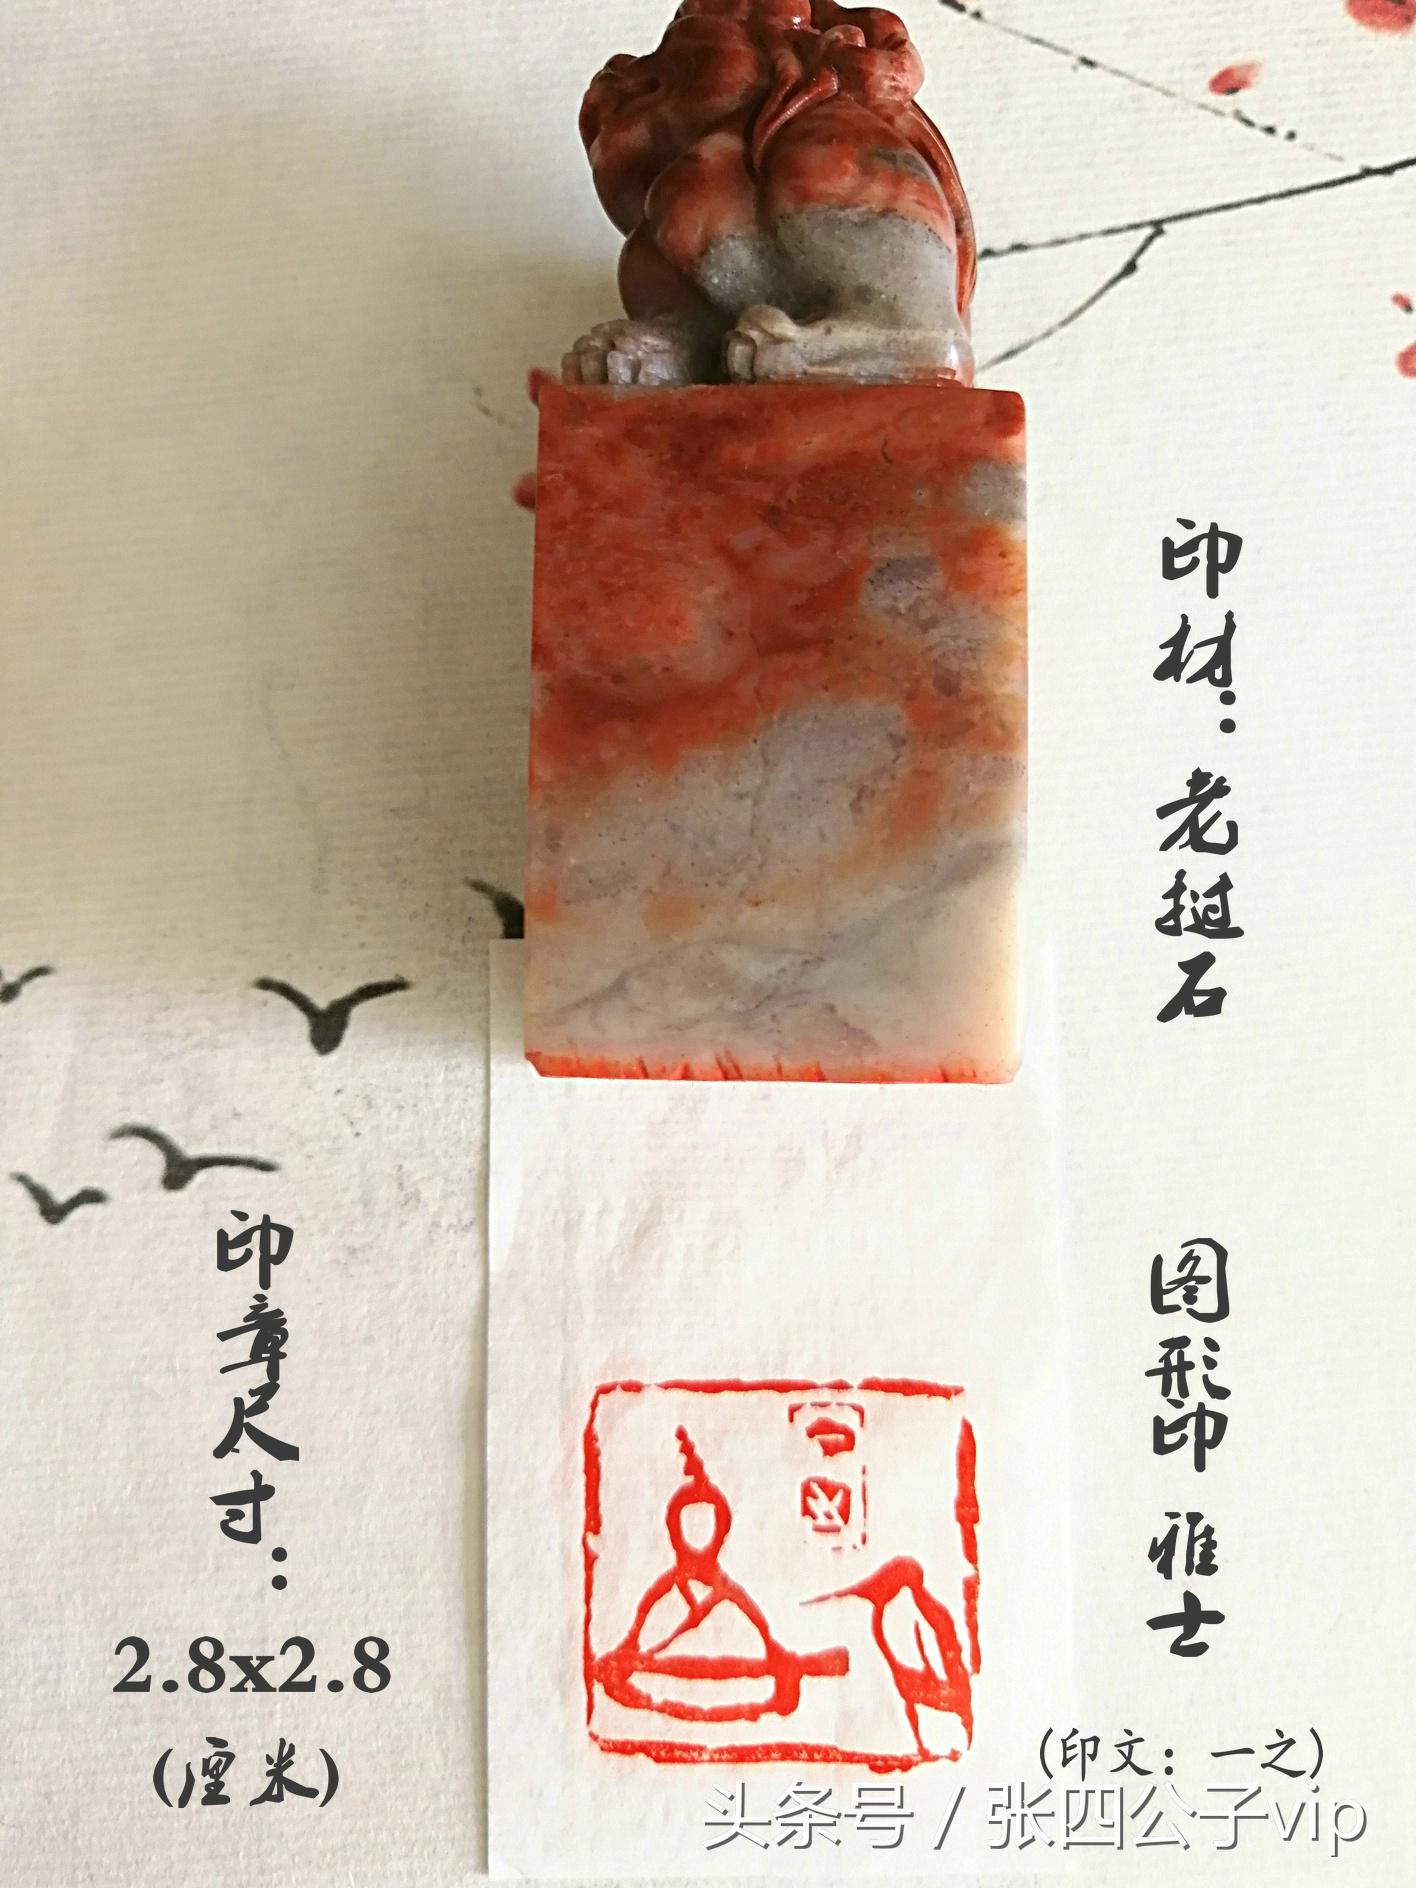 印材：老挝石
图形印 雅士
(印文：一之)
印章尺寸：
2.8x2.8
(厘米)
头条号 / 张四公子vip